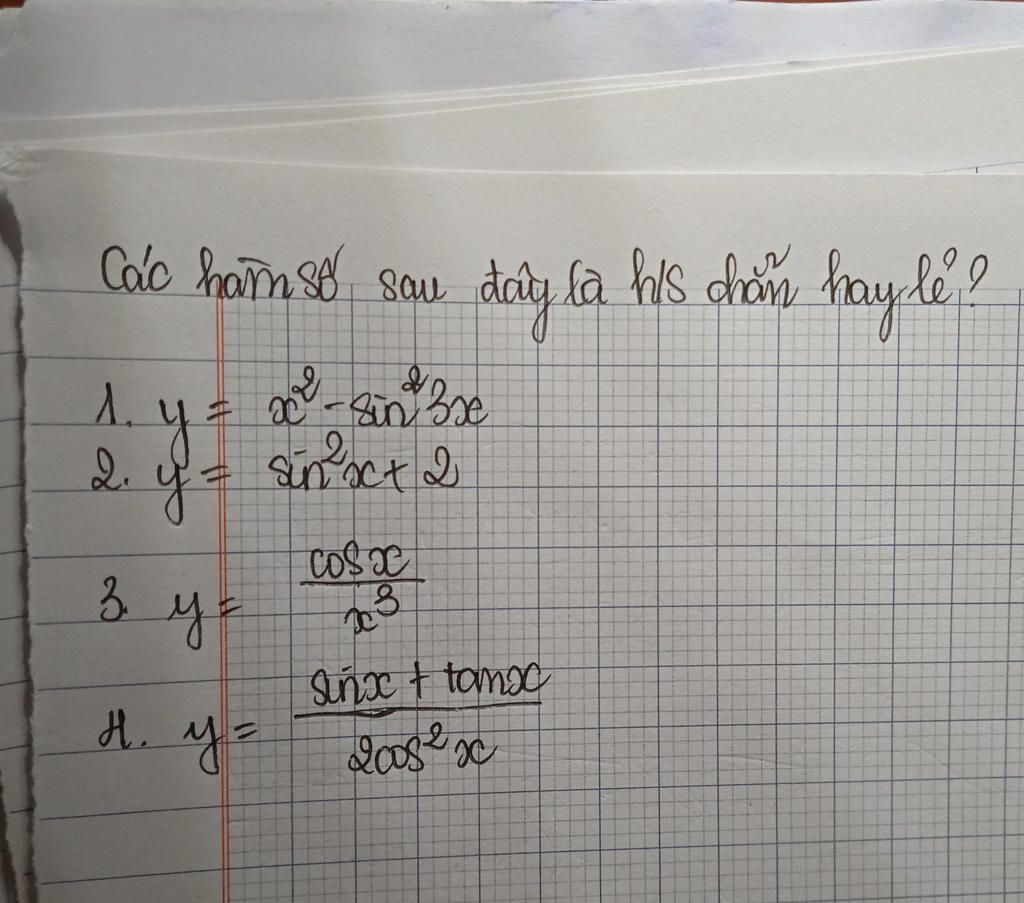 Các hàm số sau đây là h/s chẵn hay lẻ?
1. y = x² - sin²3x
2. y = sin²x + 2
3. y = cosx / x³
4. y = sinx + tanx / 2cos²x